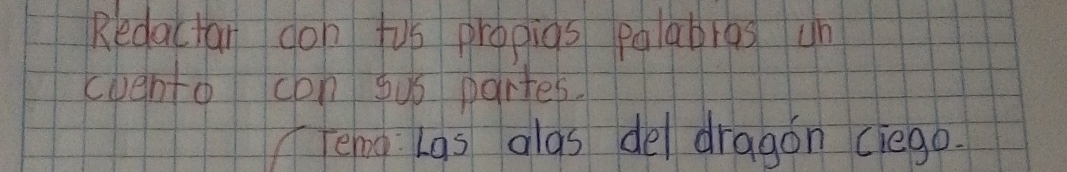 Redactar con tus propias palabras un
cuento con sus partes.
Tema: Las alas del dragón ciego.